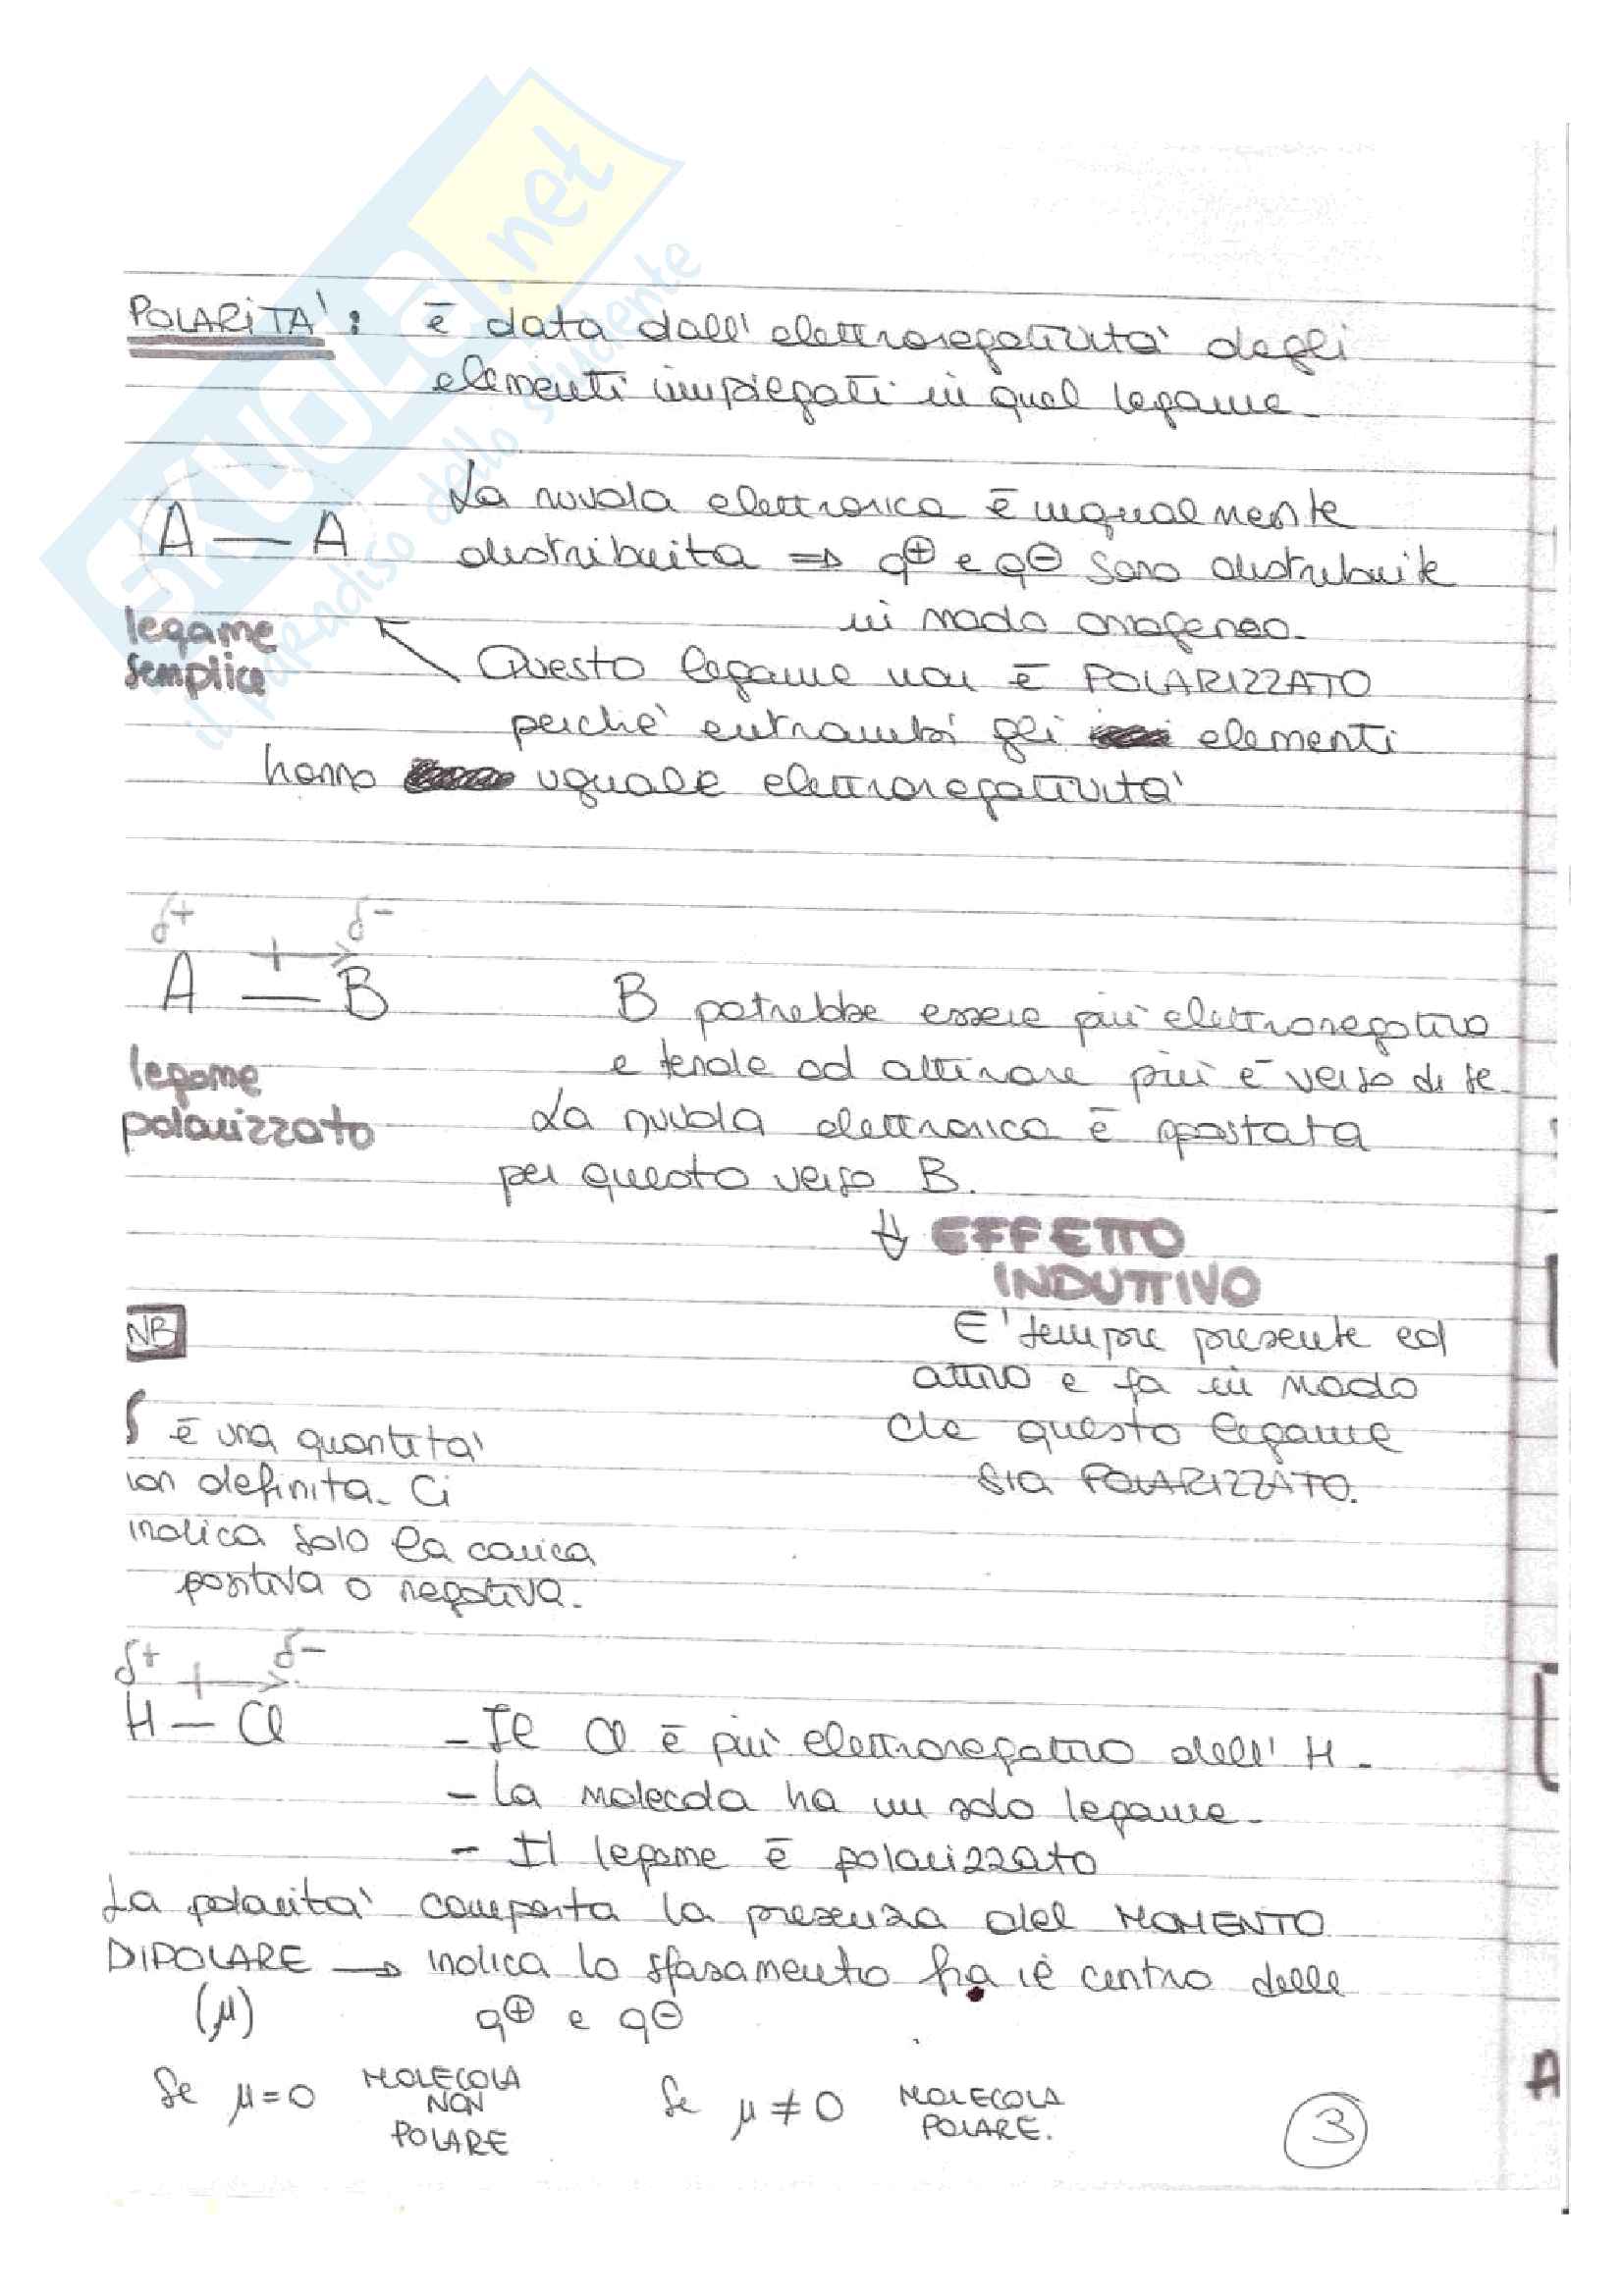 SKUOLA.net
il paradiso dello studente
POLARITA': è data dall'elettronegatività degli
elementi impiegati in quel legame.
A — A
La nuvola elettronica è ugualmente
distribuita ⇒ q⊕ e q⊖ sono distribuite
in modo omogeneo.
legame
semplice
Questo legame non è POLARIZZATO
perchè entrambi gli elementi
hanno uguale elettronegatività
δ+ δ-
A — B
B potrebbe essere più elettronegativo
e tende ad attirare più e⁻ verso di se.
legame
polarizzato
La nuvola elettronica è spostata
per questo verso B.
⇓ EFFETTO
INDUTTIVO
E' sempre presente ed
attivo e fa in modo
che questo legame
sia POLARIZZATO.
NB
δ è una quantità
non definita. Ci
indica solo la carica
positiva o negativa.
δ+ δ-
H — Cl
- Il Cl è più elettronegativo dell'H.
- La molecola ha un solo legame.
- Il legame è polarizzato
La polarità comporta la presenza del MOMENTO
DIPOLARE → indica lo sfasamento fra il centro delle
(μ) q⊕ e q⊖
Se μ=0 MOLECOLA NON POLARE
Se μ≠0 MOLECOLA POLARE.
3
A